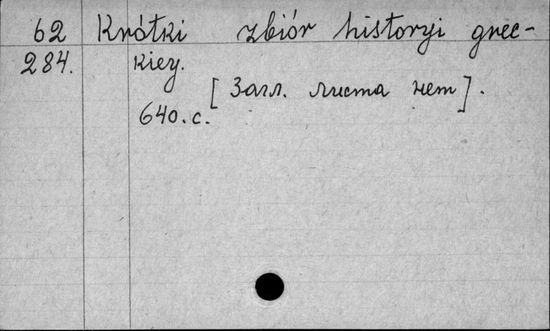 62 Krótki zbiór historyi grec-
284. kiey.
[Загл. листа нет].
640.c.